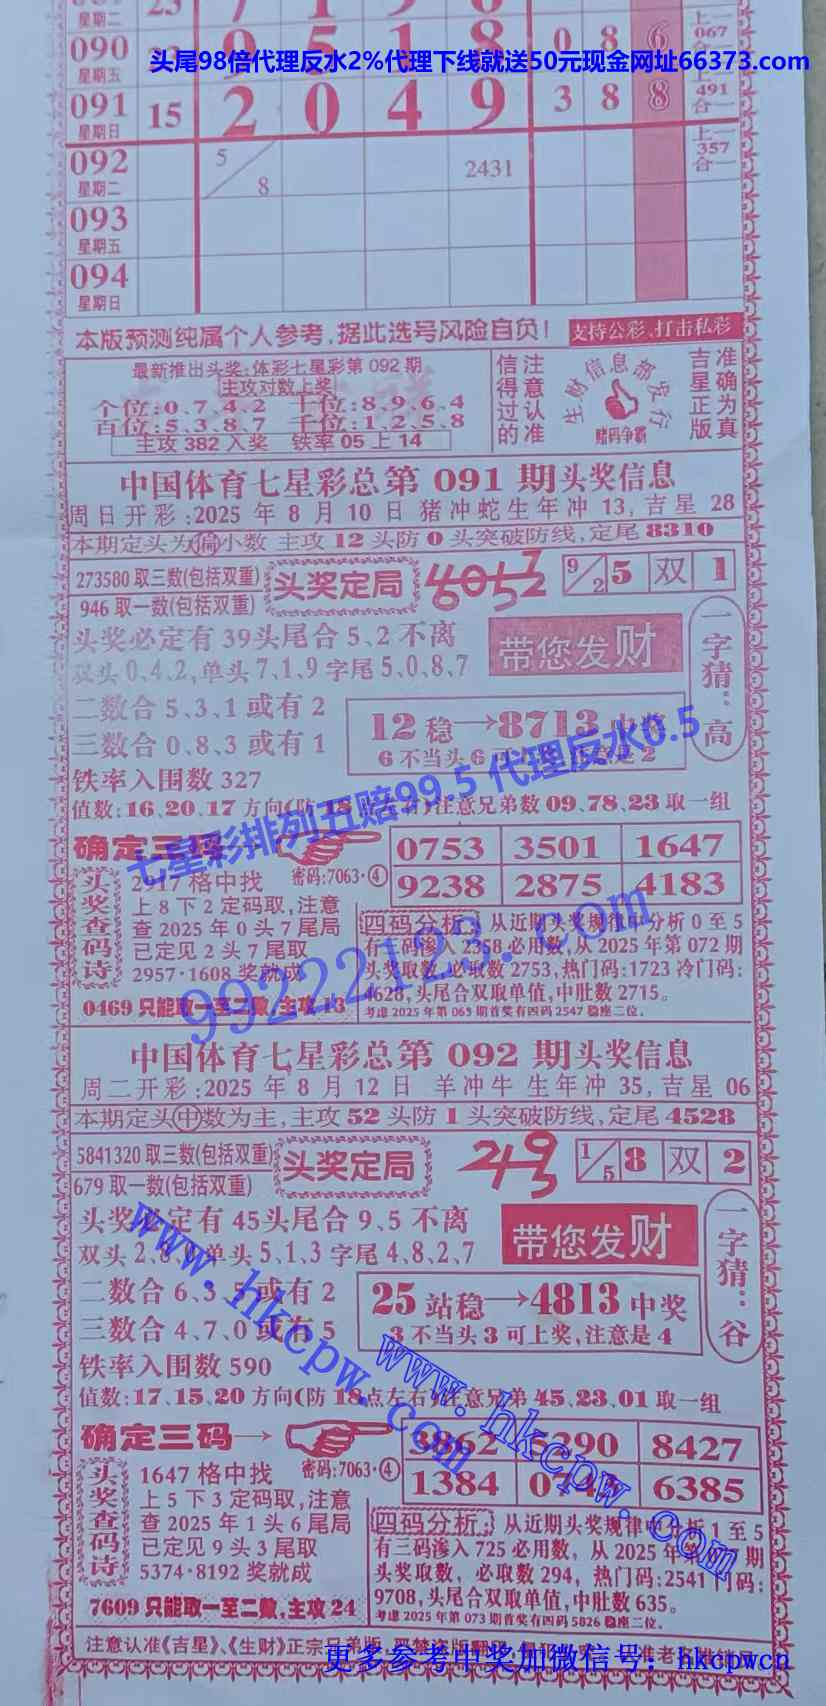 星期二 23 7 1 9 8
090 星期五 9 5 1 8 0 8 6 上一 067 合一
头尾98倍代理反水2%代理下线就送50元现金网址66373.com
091 星期日 15 2 0 4 9 3 8 8 上一 491 合一
092 星期二 5/8 2431 上一 357 合一
093 星期五
094 星期日
本版预测纯属个人参考,据此选号风险自负! 支持公彩、打击私彩
最新推出头奖:体彩七星彩第092期
主攻对数上奖
个位:0、7、4、2 十位:8、9、6、4
百位:5、3、8、7 千位:1、2、5、8
主攻382入奖 铁率05上14
信得过的
注意认准
生财信息部发行
赌码争霸
吉星正版
准确为真
中国体育七星彩总第091期头奖信息
周日开彩:2025年8月10日 猪冲蛇生年冲13,吉星28
本期定头为偏小数 主攻12头防0头突破防线,定尾8310
273580取三数(包括双重)
946取一数(包括双重)
头奖定局
9/2 5 双 1
头奖必定有39头尾合5、2不离
双头0、4、2,单头7、1、9字尾5、0、8、7
带您发财
一字猜:高
二数合5、3、1或有2
三数合0、8、3或有1
12稳→8713中奖
铁率入围数327
七星彩排列五赔99.5 代理反水0.5
值数:16、20、17方向(防15点左右)注意兄弟数09、78、23取一组
确定三码
0753 3501 1647
9238 2875 4183
头奖查码诗
2917格中找 密码:7063·④
上8下2定码取,注意
查2025年0头7尾局
已定见2头7尾取
2957·1608奖就成
0469只能取一至二数,主攻13
四码分析:从近期头奖规律中分析0至5
有三码渗入2358必用数,从2025年第072期
头奖取数,必取数2753,热门码:1723冷门码:
4628,头尾合双取单值,中肚数2715。
考虑2025年第063期首奖有四码2547稳座二位。
99222123.com
中国体育七星彩总第092期头奖信息
周二开彩:2025年8月12日 羊冲牛 生年冲35,吉星06
本期定头中数为主,主攻52头防1头突破防线,定尾4528
5841320取三数(包括双重)
679取一数(包括双重)
头奖定局
1/5 8 双 2
头奖必定有45头尾合9、5不离
双头2、8、0,单头5、1、3字尾4、8、2、7
带您发财
一字猜:谷
二数合6、3、5或有2
三数合4、7、0或有5
25站稳→4813中奖
3不当头3可上奖,注意是4
铁率入围数590
值数:17、15、20方向(防18点左右)注意兄弟45、23、01取一组
确定三码→
3862 5290 8427
1384 6385
头奖查码诗
1647格中找 密码:7063·④
上5下3定码取,注意
查2025年1头6尾局
已定见9头3尾取
5374·8192奖就成
7609只能取一至二数,主攻24
四码分析:从近期头奖规律中分析1至5
有三码渗入725必用数,从2025年
头奖取数,必取数294,热门码:2541 门码:
9708,头尾合双取单值,中肚数635。
考虑2025年第073期首奖有四码5826稳座二位。
www.hkcpw.com
www.hkcpw.com
注意认准《吉星》、《生财》正宗兄弟版
更多参考中奖加微信号:hkcpwcn